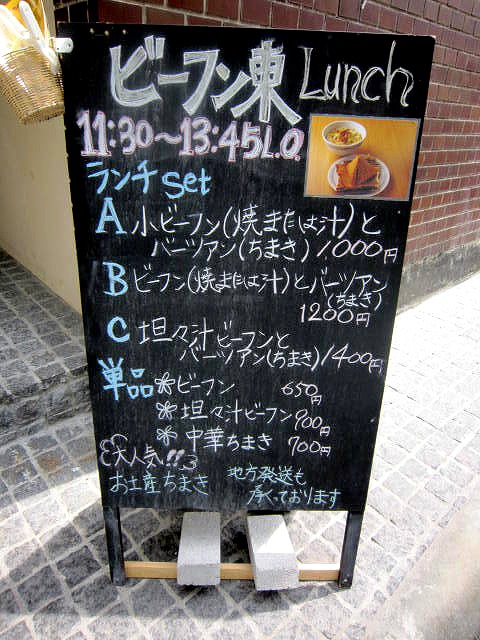 ビーフン東 Lunch
11:30～13:45L.O.
ランチ set
A 小ビーフン(焼または汁)と
バーツアン(ちまき) 1,000円
B ビーフン(焼または汁)とバーツアン
(ちまき)
1200円
C 坦々汁ビーフンと
バーツアン(ちまき) 1400円
単品 ビーフン 650円
坦々汁ビーフン 900円
中華ちまき 700円
大人気!!
お土産ちまき 地方発送も
承っております